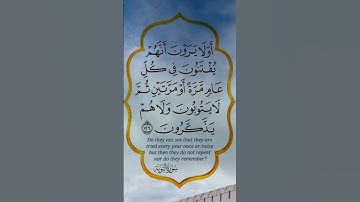 أَوَلَا يَرَوْنَ أَنَّهُمْ
يُفْتَنُونَ فِي كُلِّ
عَامٍ مَّرَّةً أَوْ مَرَّتَيْنِ ثُمَّ
لَا يَتُوبُونَ وَلَا هُمْ
يَذَّكَّرُونَ ١٢٦
Do they not see that they are
tried every year once or twice
but then they do not repent
nor do they remember?
سورة التوبة